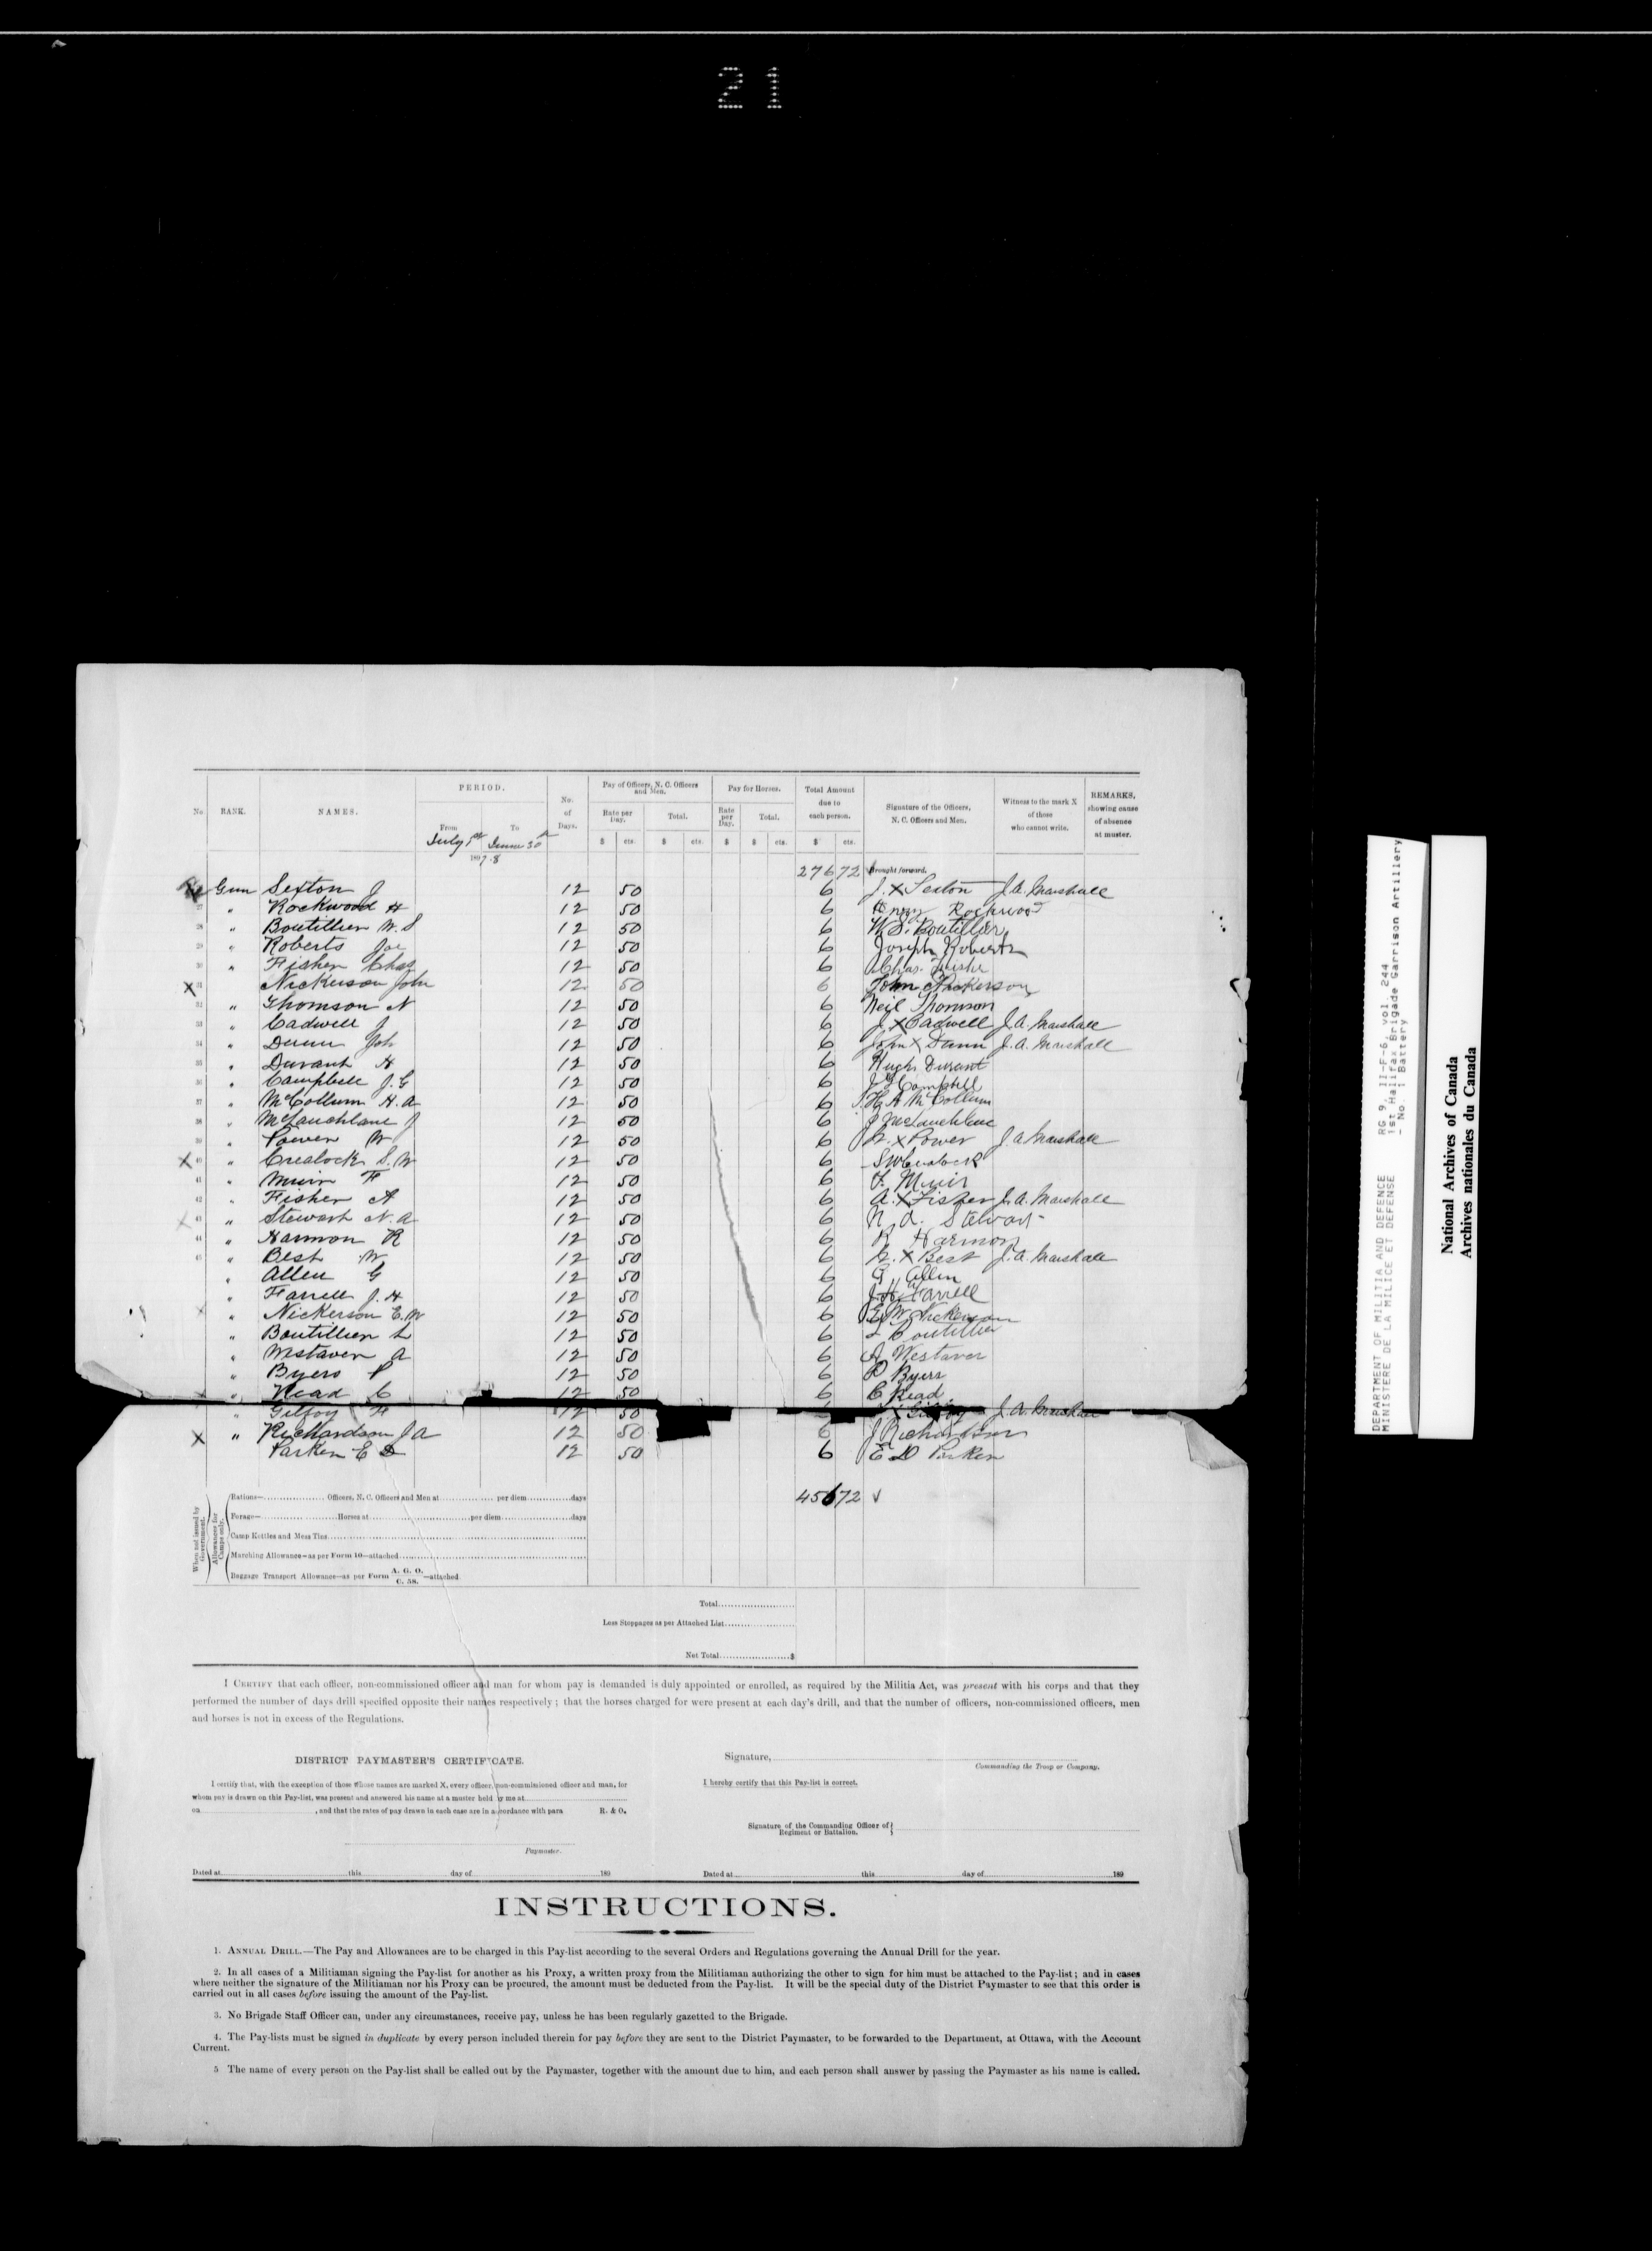 21
No RANK. NAMES. PERIOD. From To No. of Days. Pay of Officers, N. C. Officers and Men. Rate per Day. Total. Pay for Horses. Rate per Day. Total. Total Amount due to each person. Signature of the Officers, N. C. Officers and Men. Witness to the mark X of those who cannot write. REMARKS, showing cause of absence at muster.
$ cts. $ cts. $ $ cts. $ cts.
July 1st June 30th
1897.8
276 72 Brought forward.
Gun Sexton J 12 50 6 J. X Sexton J. A. Marshall
27 " Rockwood H 12 50 6 Henry Rockwood
28 " Boutillier W. S 12 50 6 W. S. Boutillier
29 " Roberts Joe 12 50 6 Joseph Roberts
30 " Fisher Chas 12 50 6 Chas. Fisher
X 31 Nickerson John 12 50 6 John Nickerson
32 " Thomson N 12 50 6 Neil Thomson
33 " Cadwell J 12 50 6 J X Cadwell J. A. Marshall
34 " Dunn Joh 12 50 6 John X Dunn J. A. Marshall
35 " Durant H 12 50 6 Hugh Durant
36 " Campbell J. G 12 50 6 J G Campbell
37 " McCollum H. A 12 50 6 H A McCollum
38 " McLauchlane J 12 50 6 J McLauchlane
39 " Power W 12 50 6 W. X Power J A Marshall
X 40 " Crealock S. W 12 50 6 S W Crealock
41 " Muir F 12 50 6 F. Muir
42 " Fisher A 12 50 6 A. X Fisher J. A. Marshall
X 43 " Stewart N. A 12 50 6 N. A. Stewart
44 " Harmon R 12 50 6 R Harmon
45 " Best W 12 50 6 W. X Best J. A. Marshall
" Allen G 12 50 6 G Allen
" Farrell J. H 12 50 6 J. H. Farrell
X " Nickerson E. W 12 50 6 E. W. Nickerson
" Boutillier L 12 50 6 L Boutillier
" Westaver A 12 50 6 A Westaver
" Byers P 12 50 6 P Byers
" Head C 12 50 6 C Head
" Gilfoy H 12 50 X Gilfoy J. A. Marshall
X " Richardson J A 12 50 6 J Richardson
Parker E D 12 50 6 E D Parker
456 72 √
When not issued by Government.
Allowances for Camps only.
Rations— Officers, N. C. Officers and Men at per diem days
Forage— Horses at per diem days
Camp Kettles and Mess Tins
Marching Allowance—as per Form 10—attached
Baggage Transport Allowance—as per Form A. G. O. C. 58. —attached
Total
Less Stoppages as per Attached List
Net Total $
I CERTIFY that each officer, non-commissioned officer and man for whom pay is demanded is duly appointed or enrolled, as required by the Militia Act, was present with his corps and that they
performed the number of days drill specified opposite their names respectively; that the horses charged for were present at each day's drill, and that the number of officers, non-commissioned officers, men
and horses is not in excess of the Regulations.
DISTRICT PAYMASTER'S CERTIFICATE.
I certify that, with the exception of those whose names are marked X, every officer, non-commissioned officer and man, for
whom pay is drawn on this Pay-list, was present and answered his name at a muster held by me at
on , and that the rates of pay drawn in each case are in accordance with para R. & O.
Paymaster.
Dated at this day of 189
Signature,
Commanding the Troop or Company.
I hereby certify that this Pay-list is correct.
Signature of the Commanding Officer of Regiment or Battalion. }
Dated at this day of 189
INSTRUCTIONS.
1. ANNUAL DRILL.—The Pay and Allowances are to be charged in this Pay-list according to the several Orders and Regulations governing the Annual Drill for the year.
2. In all cases of a Militiaman signing the Pay-list for another as his Proxy, a written proxy from the Militiaman authorizing the other to sign for him must be attached to the Pay-list; and in cases
where neither the signature of the Militiaman nor his Proxy can be procured, the amount must be deducted from the Pay-list. It will be the special duty of the District Paymaster to see that this order is
carried out in all cases before issuing the amount of the Pay-list.
3. No Brigade Staff Officer can, under any circumstances, receive pay, unless he has been regularly gazetted to the Brigade.
4. The Pay-lists must be signed in duplicate by every person included therein for pay before they are sent to the District Paymaster, to be forwarded to the Department, at Ottawa, with the Account
Current.
5 The name of every person on the Pay-list shall be called out by the Paymaster, together with the amount due to him, and each person shall answer by passing the Paymaster as his name is called.
DEPARTMENT OF MILITIA AND DEFENCE RG 9, II-F-6, vol. 244
MINISTERE DE LA MILICE ET DEFENSE 1st Halifax Brigade Garrison Artillery
- No. 1 Battery
National Archives of Canada
Archives nationales du Canada